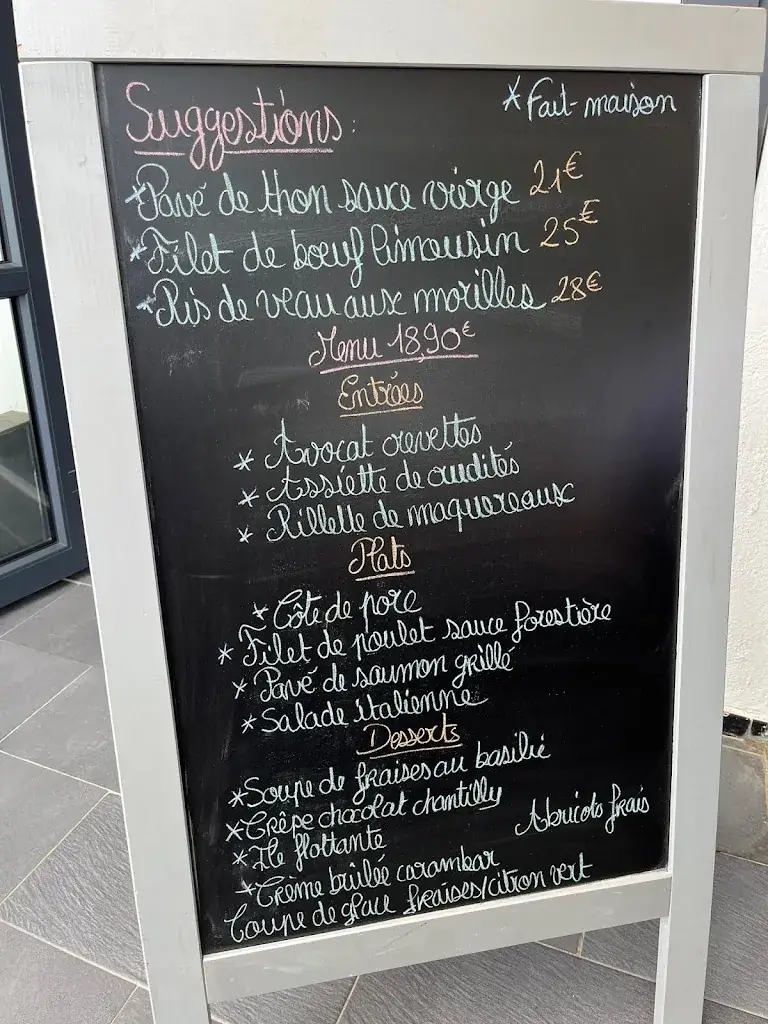 Suggestions :
*Fait-maison
*Pavé de thon sauce vierge 21€
*Filet de boeuf limousin 25€
*Ris de veau aux morilles 28€
Menu 18,90€
Entrées
* Avocat crevettes
* Assiette de crudités
* Rillette de maquereaux
Plats
* Côte de porc
* Filet de poulet sauce forestière
* Pavé de saumon grillé
* Salade italienne
Desserts
*Soupe de fraises au basilic
*Crêpe chocolat chantilly
*Ile flottante
Abricots frais
*Crème brûlée carambar
Coupe de glace fraises/citron vert